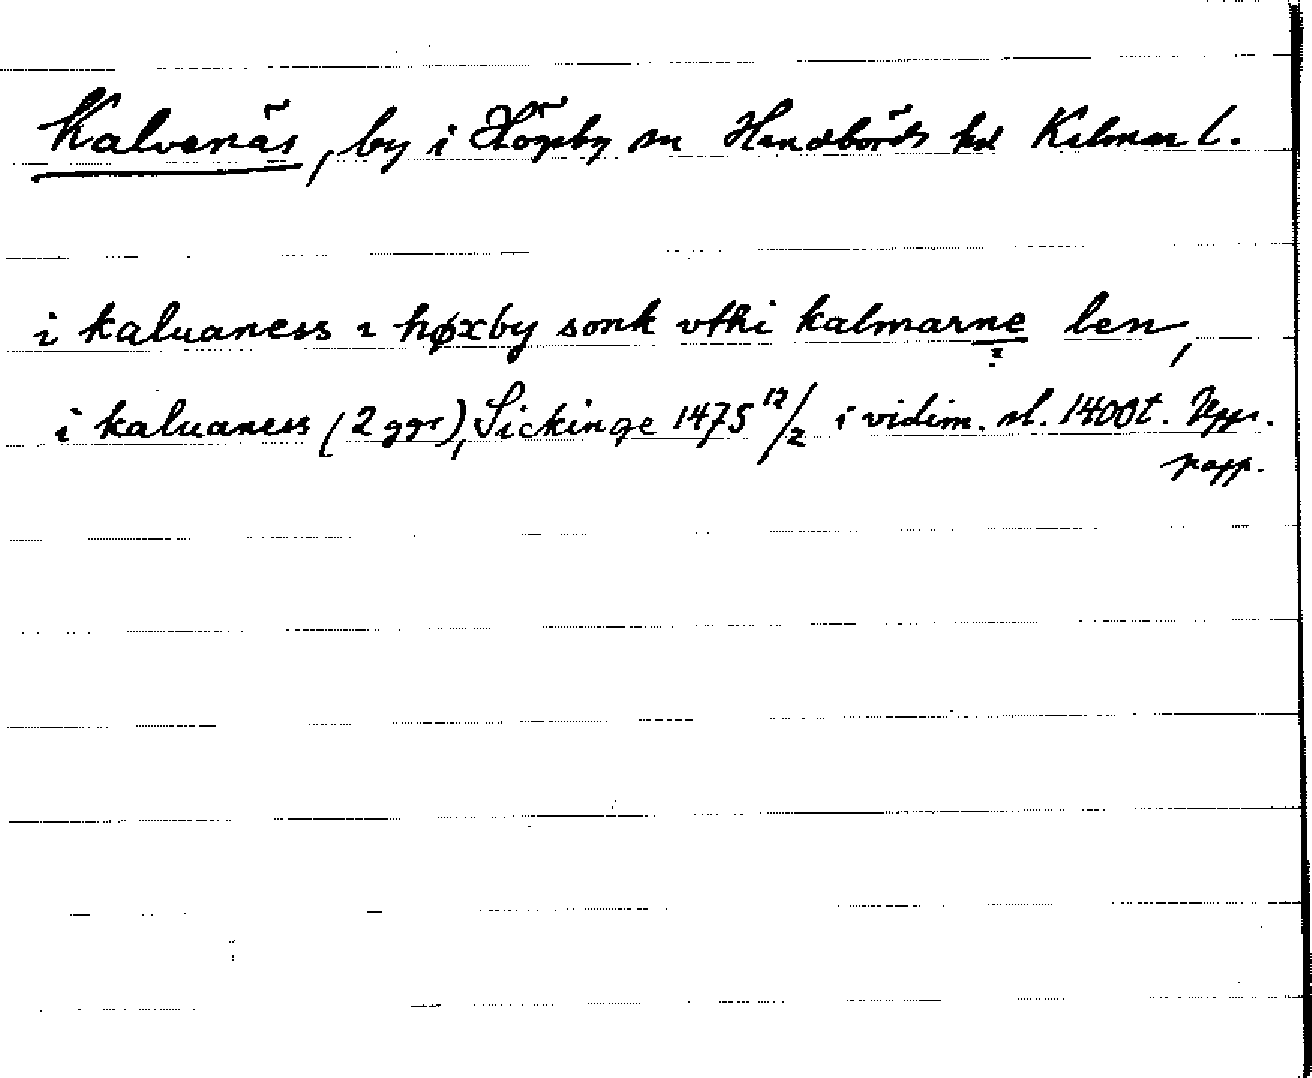 Kalvenäs, by i Högsby sn Handbörds hd Kalmar l.
i kaluaness i høxby sonk vthi kalmarne len,
i kaluaness (2 ggr), Sickinge 1475 12/2 i vidim. sl. 1400t. Upps.
papp.